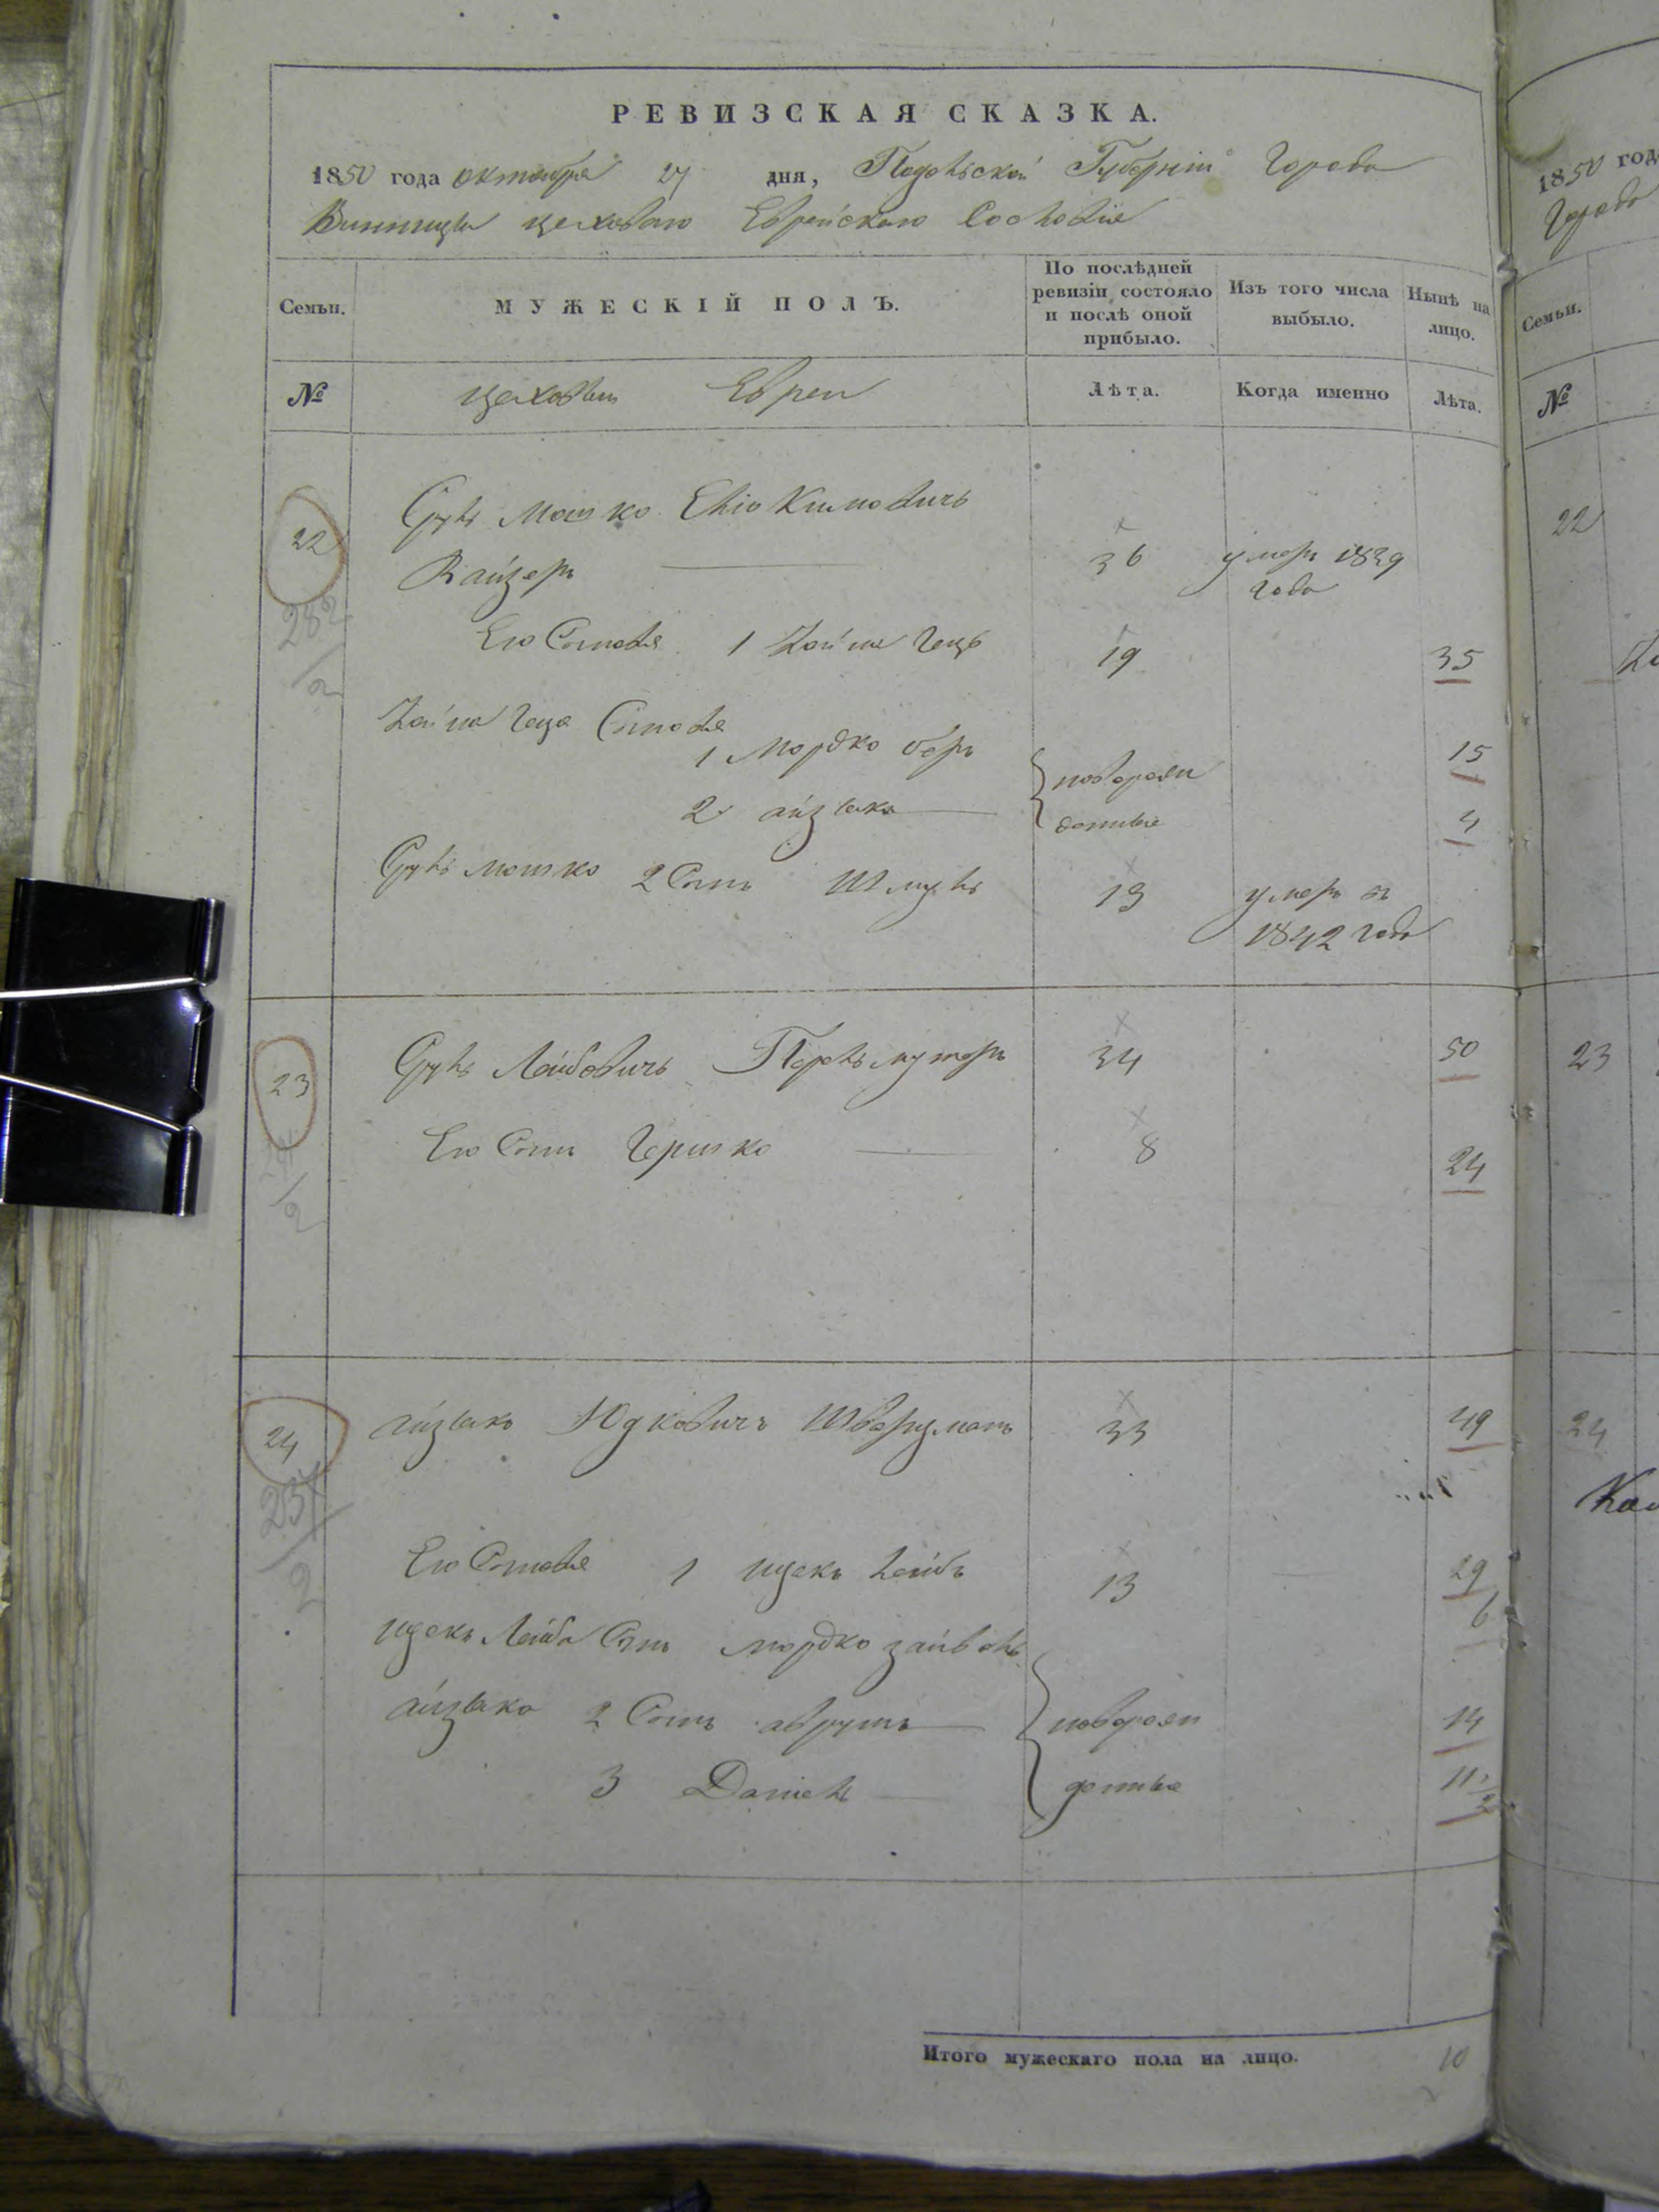 РЕВИЗСКАЯ СКАЗКА.
1850 года октября 27 дня, Подольской Губерніи Города
Винницы цеховаго Еврейскаго Сословія
Семьи.
МУЖЕСКІЙ ПОЛЪ.
По послѣдней ревизіи состояло и послѣ оной прибыло.
Изъ того числа выбыло.
Нынѣ на лицо.
№
цеховые Евреи
Лѣта.
Когда именно
Лѣта.
22
Срулъ Мошко
36 умеръ 1839
года
Его Сыновья 1
19
35
Сыновья
1 Мордко беръ
15
2 айзыкъ
новорож
денные
4
Срулъ мошко 2 Сынъ Шмулъ
13 умеръ въ
1842 года
23
Срулъ Лейбовичъ Перельмутеръ
34
50
Его Сынъ Гершко
8
24
24
айзыкъ Юдковичъ Шварцманъ
33
49
Его Сыновья 1 ицекъ лейбъ
13
29
ицекъ Лейба Сынъ мордко зайвель
6
айзыка 2 Сынъ аврумъ
новорож
14
3 Даніель
денные
11
Итого мужескаго пола на лицо.
10
1850 год
Города
Семьи.
№
22
23
24